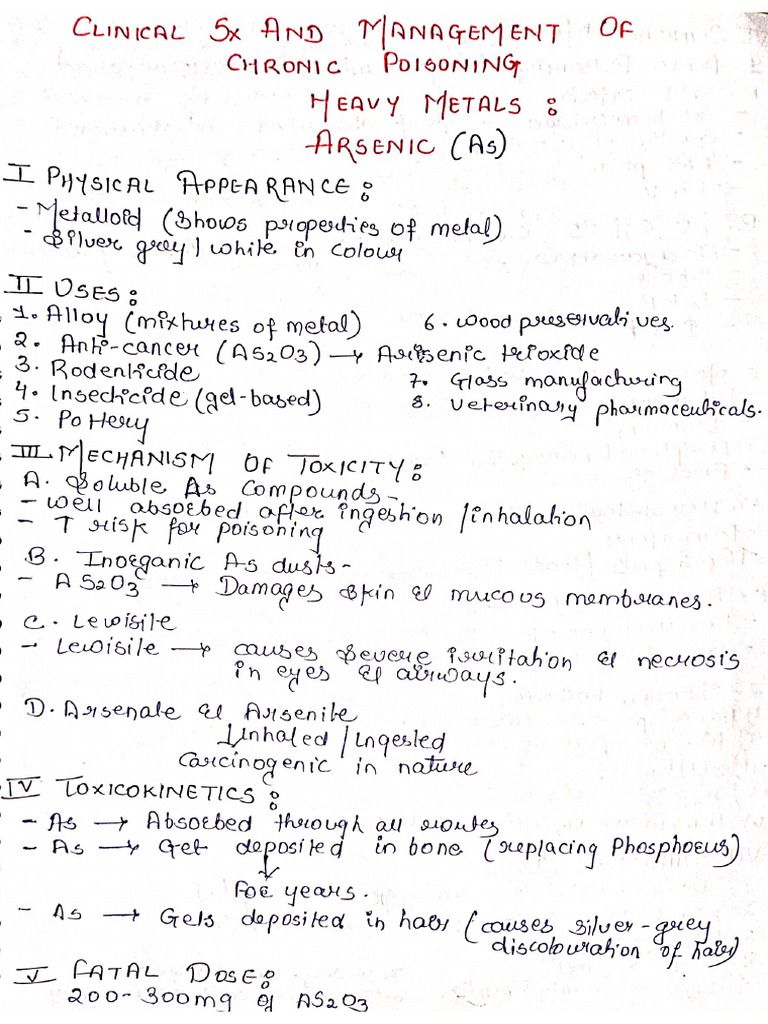 CLINICAL SX AND MANAGEMENT OF
CHRONIC POISONING
HEAVY METALS :
ARSENIC (As)
I PHYSICAL APPEARANCE :
- Metalloid (shows properties of metal)
- Silver grey / white in colour
II USES :
1. Alloy (mixtures of metal)
2. Anti-cancer (AS2O3) → Arisenic trioxide
3. Rodenticide
4. Insecticide (gel-based)
5. Pottery
6. wood preservatives.
7. Glass manufacturing
8. Veterinary pharmaceuticals.
III. MECHANISM OF TOXICITY :
A. Soluble As compounds -
- well absorbed after ingestion / inhalation
- ↑ risk for poisoning
B. Inorganic As dusts -
- AS2O3 → Damages skin & mucous membranes.
C. Lewisite
- Lewisite → causes severe irritation & necrosis
in eyes & airways.
D. Arsenate & Arsenite
↓ Inhaled / Ingested
Carcinogenic in nature
IV TOXICOKINETICS :
- As → Absorbed through all routes
- As → Get deposited in bone (replacing Phosphorus)
↓
For years.
- As → Gets deposited in hair (causes silver-grey
discolouration of hair)
V FATAL DOSE :
200-300mg of AS2O3